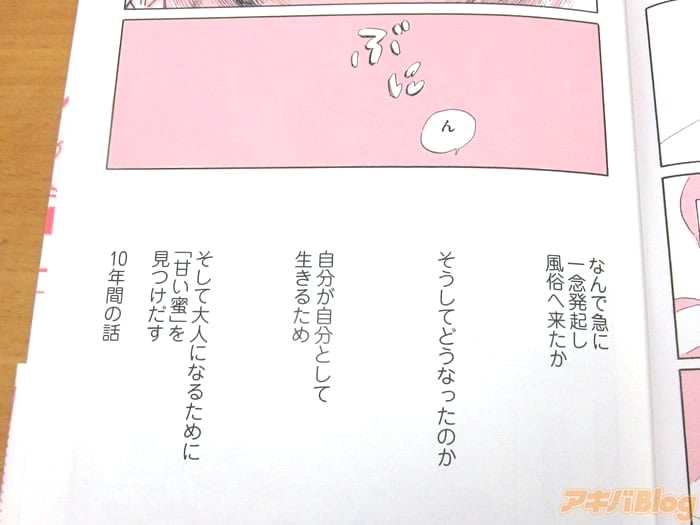 ぶに
ん
なんで急に
一念発起し
風俗へ来たか
そうしてどうなったのか
自分が自分として
生きるため
そして大人になるために
「甘い蜜」を
見つけだす
10年間の話
アキバBlog